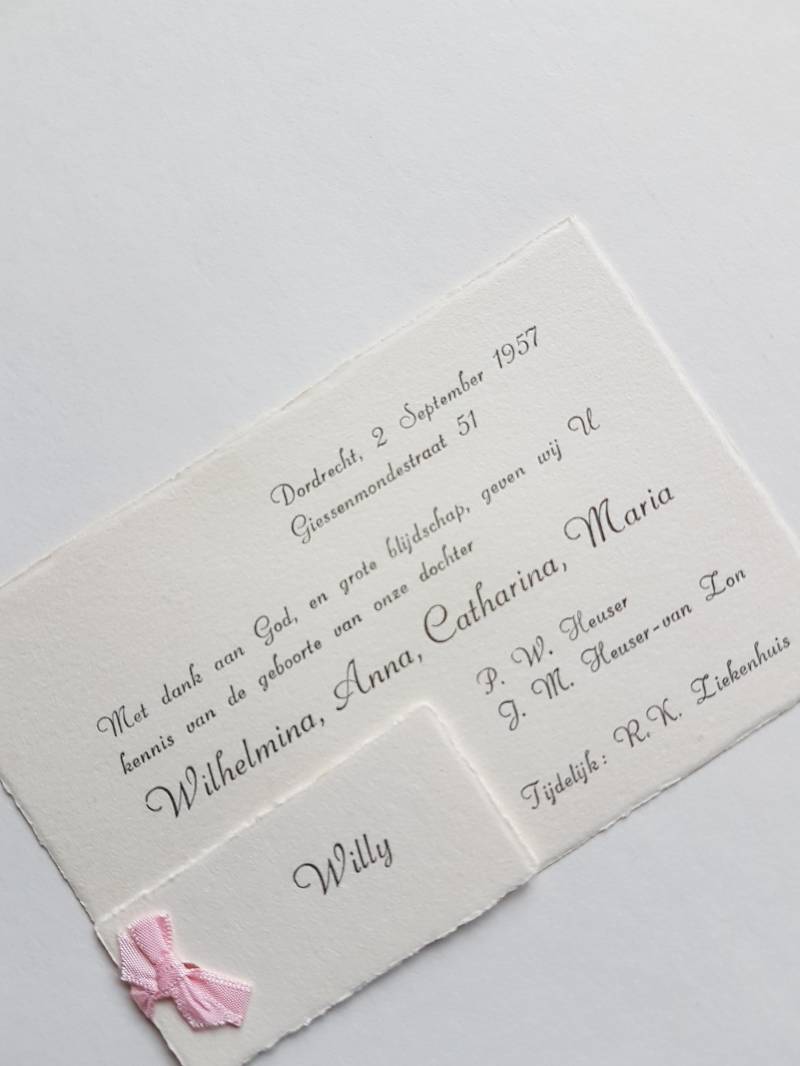 Dordrecht, 2 September 1957
Giessenmondestraat 51
Met dank aan God, en grote blijdschap, geven wij U
kennis van de geboorte van onze dochter
Wilhelmina, Anna, Catharina, Maria
P. W. Heuser
J. M. Heuser-van Zon
Tijdelijk: R.K. Ziekenhuis
Willy